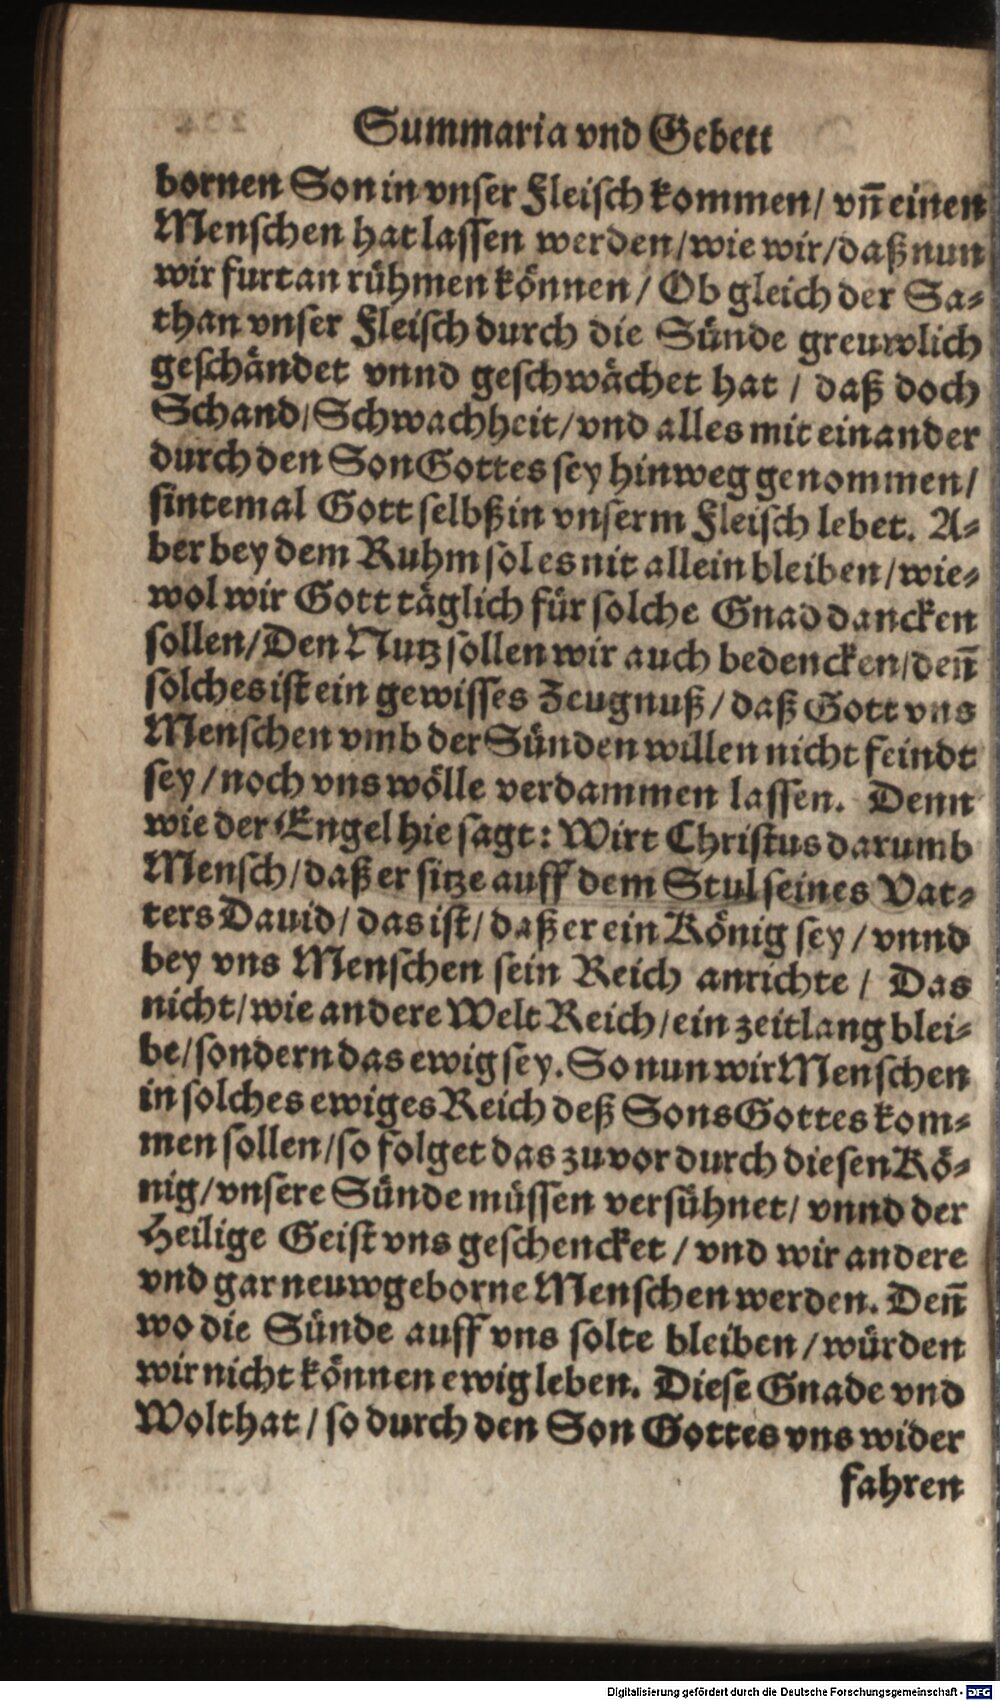 Summaria vnd Gebett
bornen Son in vnser Fleisch kommen / vn̄ einen
Menschen hat lassen werden / wie wir / daß nun
wir furtan rühmen können / Ob gleich der Sa-
than vnser Fleisch durch die Sünde greuwlich
geschändet vnnd geschwächet hat / daß doch
Schand / Schwachheit / vnd alles mit einander
durch den Son Gottes sey hinweg genommen /
sintemal Gott selbß in vnserm Fleisch lebet. A-
ber bey dem Ruhm sol es nit allein bleiben / wie-
wol wir Gott täglich für solche Gnad dancken
sollen / Den Nutz sollen wir auch bedencken / den̄
solches ist ein gewisses Zeugnuß / daß Gott vns
Menschen vmb der Sünden willen nicht feindt
sey / noch vns wölle verdammen lassen. Denn
wie der Engel hie sagt: Wirt Christus darumb
Mensch / daß er sitze auff dem Stul seines Vat-
ters Dauid / das ist / daß er ein König sey / vnnd
bey vns Menschen sein Reich anrichte / Das
nicht / wie andere Welt Reich / ein zeitlang blei-
be / sondern das ewig sey. So nun wir Menschen
in solches ewiges Reich deß Sons Gottes kom-
men sollen / so folget das zuvor durch diesen Kö-
nig / vnsere Sünde müssen versühnet / vnnd der
Heilige Geist vns geschencket / vnd wir andere
vnd gar neuwgeborne Menschen werden. Den̄
wo die Sünde auff vns solte bleiben / würden
wir nicht können ewig leben. Diese Gnade vnd
Wolthat / so durch den Son Gottes vns wider
fahren
Digitalisierung gefördert durch die Deutsche Forschungsgemeinschaft - DFG